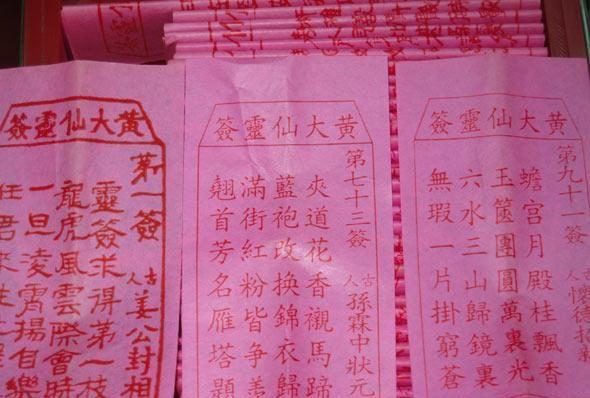 黃大仙靈簽
第一簽
古人姜公封相
靈簽求得第一枝
龍虎風雲際會時
一旦凌霄揚自樂
任君來往
黃大仙靈簽
第七十三簽
古人孫霖中狀元
夾道花香襯馬蹄
藍袍改换錦衣歸
滿街紅粉皆争羨
翹首芳名雁塔題
黃大仙靈簽
第九十一簽
古人懷德招親
蟾宫月殿桂飄香
玉篋團圓萬裏光
六水三山歸鏡裏
無瑕一片掛窮蒼